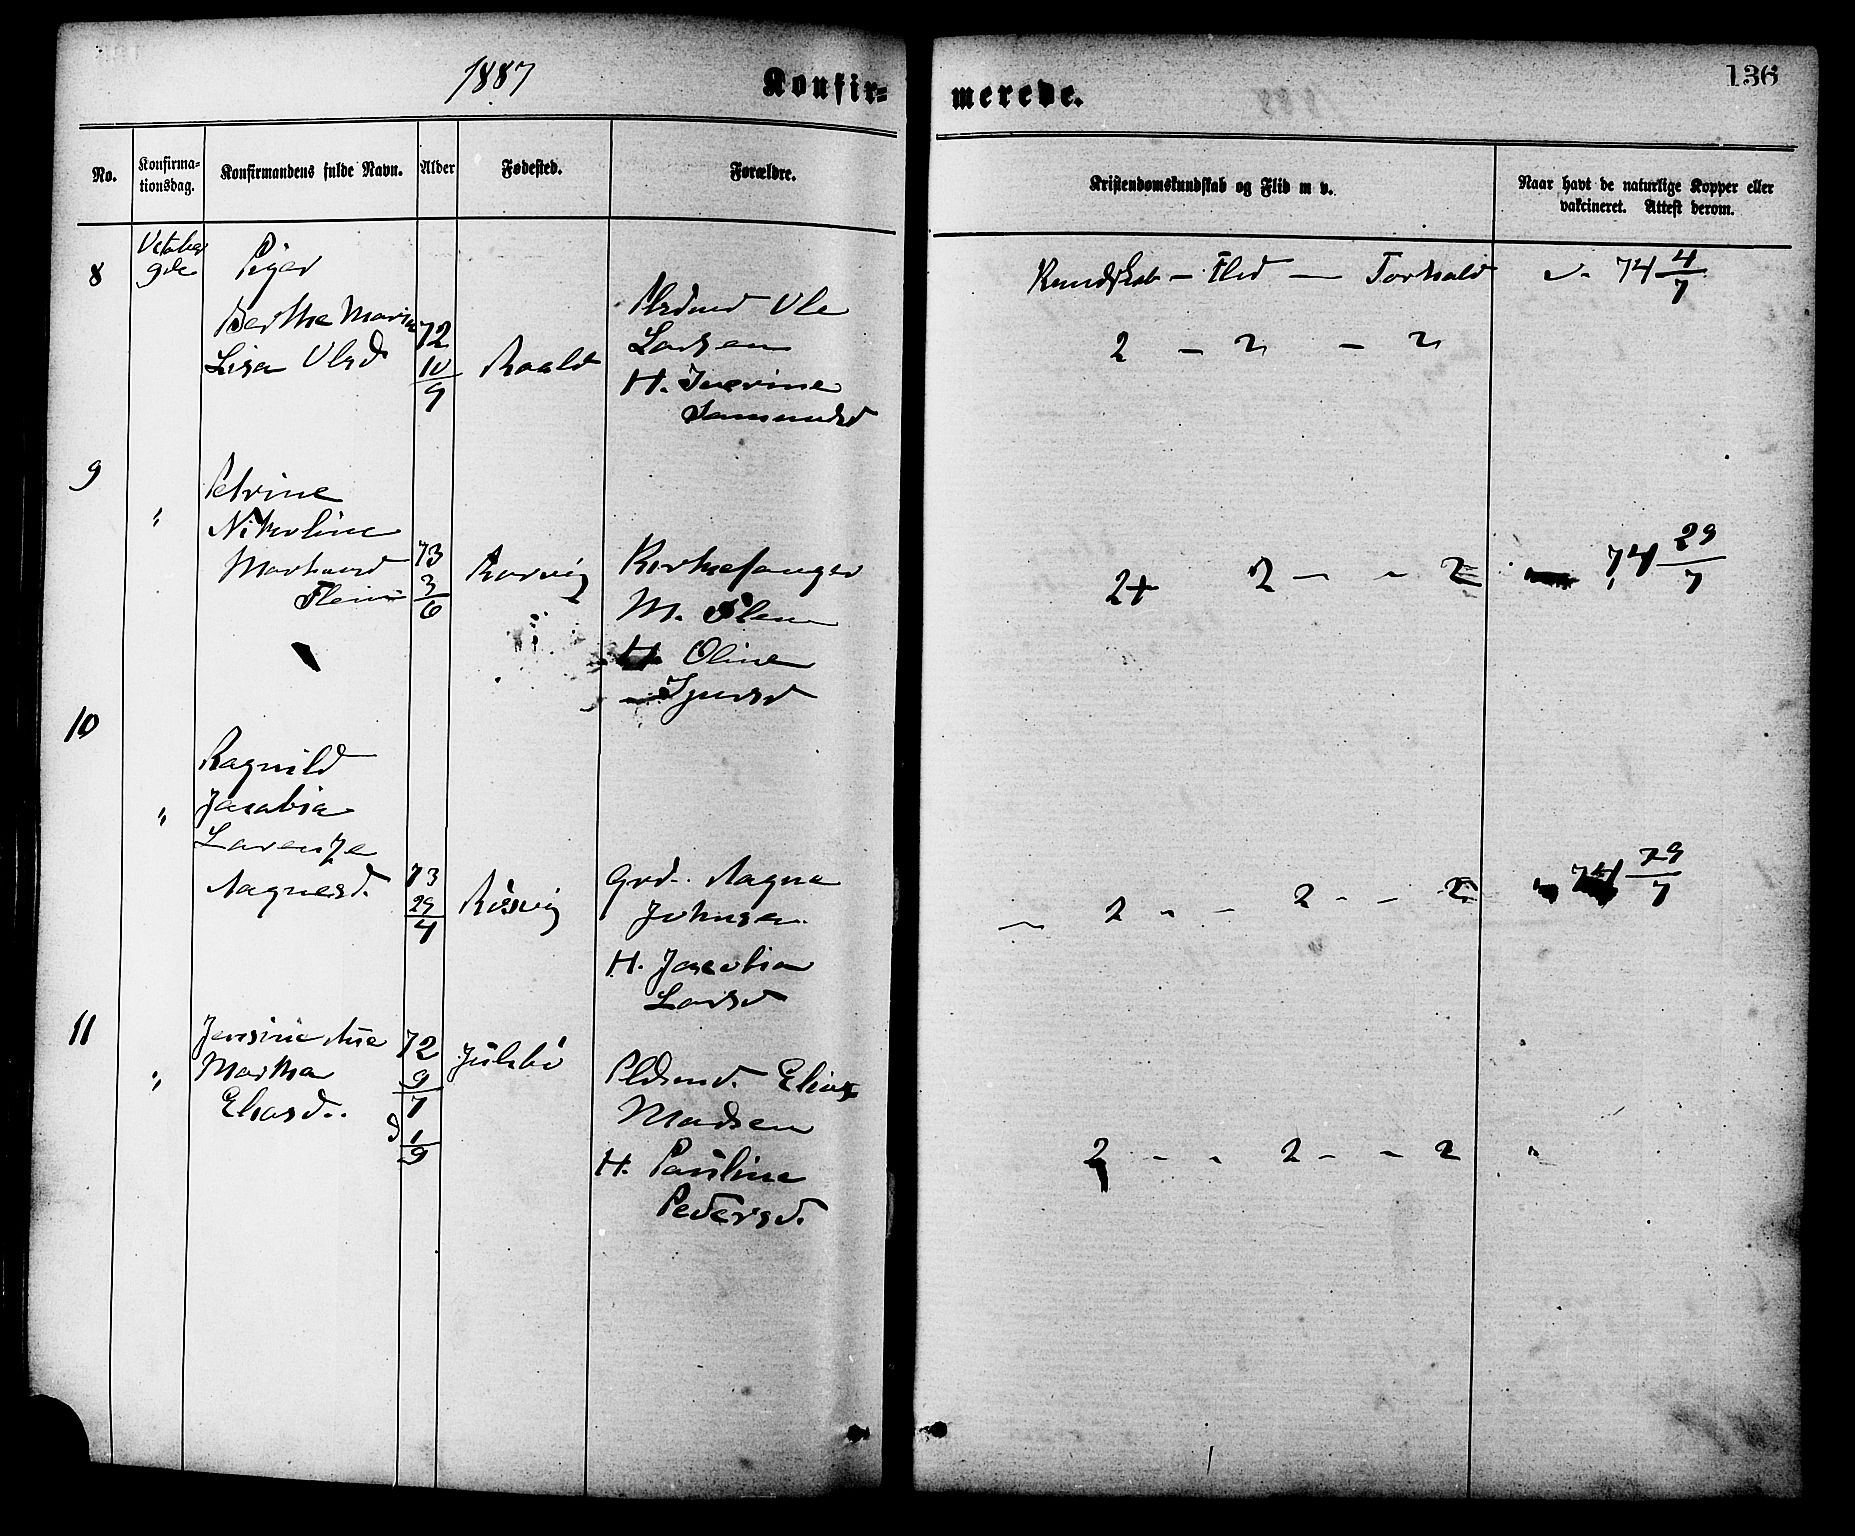 1887
Konfir=
merede.
136
No.
Konfirma-
tionsdag.
Konfirmandens fulde Navn.
Alder
Fødested.
Forældre.
Kristendomskundskab og Flid m v.
Naar havt de naturlige Kopper eller
vakcineret. Attest derom.
8
Oktober
9de
Piger
Berthe Marie
Lisa Olsd
72
10
9
Roald
Plsmd Ole
Larsen
H. Iverine
Samundsd
Kundskab — Flid — Forhold
v. 74 4
7
2 — 2 — 2
9
"
Petrine
Nikoline
Flem
73
3
6
Rørvig
Kirkesanger
M. Flem
H. Oline
2+ 2 — - 2
74 29
7
10
"
Ragnild
Jacobia
Lorense
Aagnesd.
73
29
4
Røsvig
Grd. Aagne
Johnsen
H. Jacobia
Larsd
2 - - 2 - - 2
74 29
7
11
"
Jensine Ane
Martha
Eliasd.
72
9
7
d 1
9
Julsbø
Plsmd. Elias
Madsen
H. Pauline
Pedersd.
2 - - 2 - - 2 "